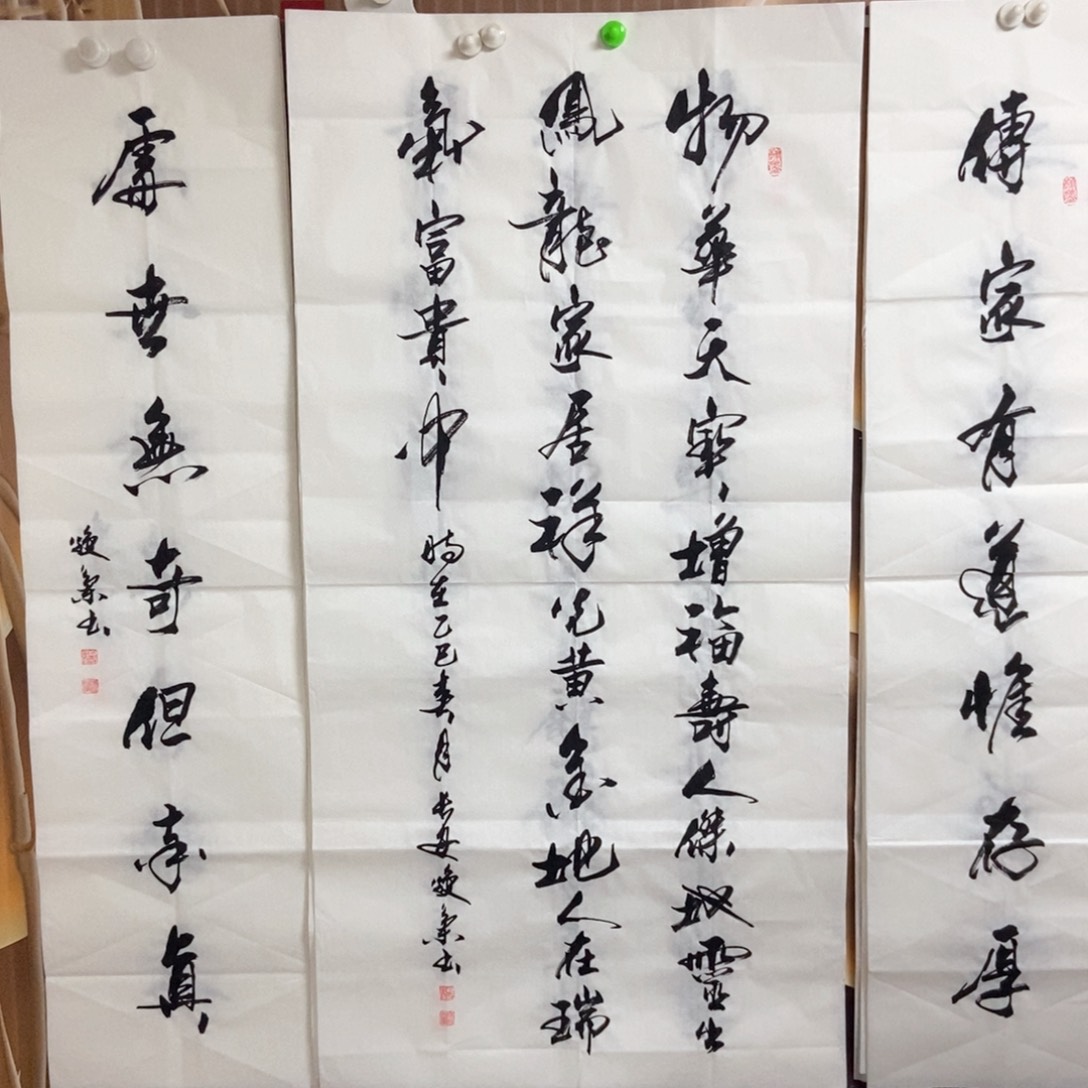 傳家有道惟存厚
物華天寶增福壽人傑地靈出
鳳龍家居祥光黃金地人在瑞
氣富貴中
時在乙巳春月長安煥書
處世無奇但率真
煥書